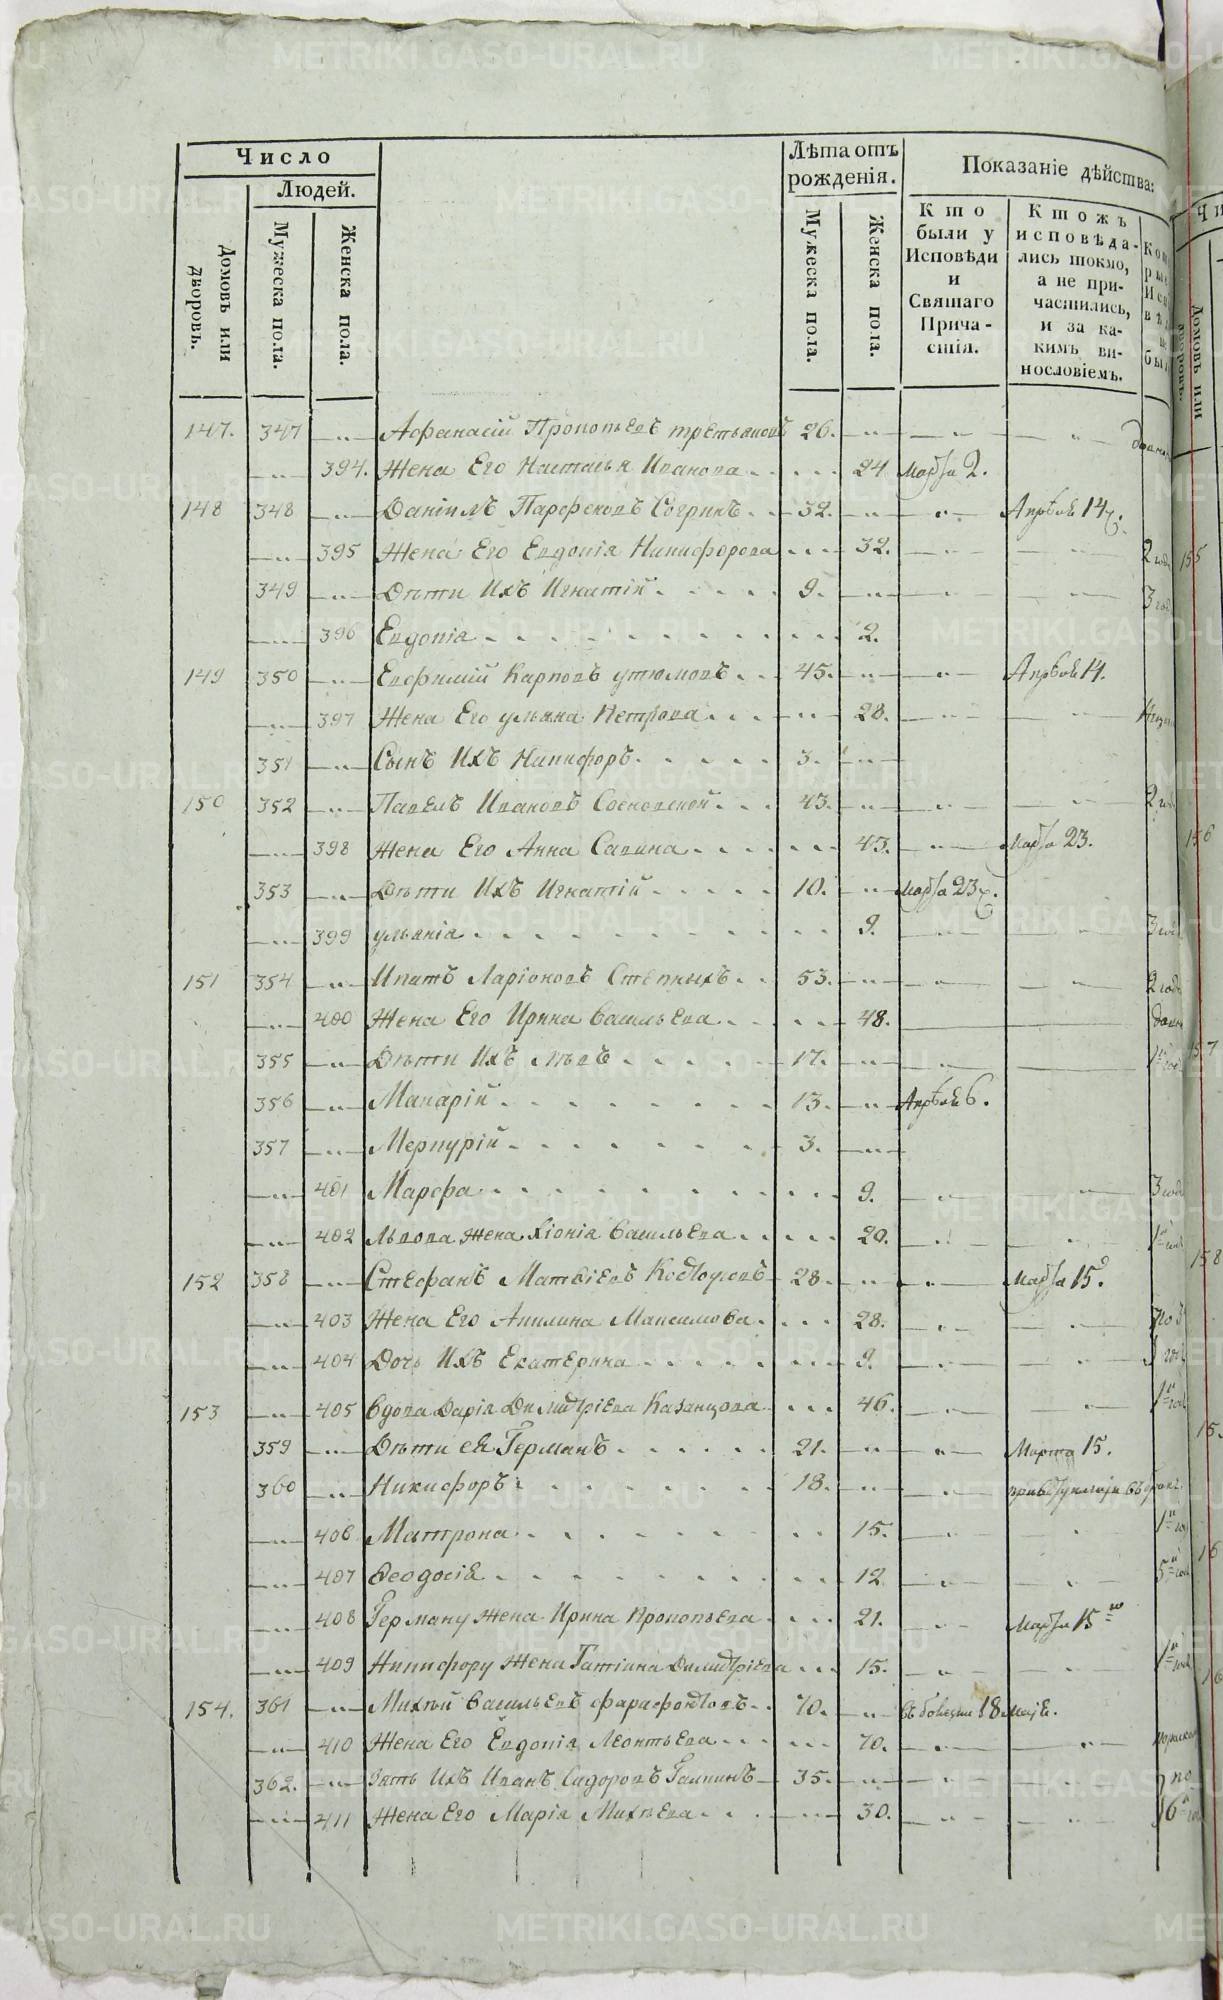 Число
Людей.
Домовъ или дворовъ.
Мужеска пола.
Женска пола.
Лѣта отъ рожденія.
Мужеска пола.
Женска пола.
Показаніе дѣйства:
Кто были у Исповѣди и Святаго Причастія.
Ктожъ исповѣдались токмо, а не причастились, и за какимъ винословіемъ.
147. 347 Афанасій Прокопьевъ третьяковъ 26.
394. Жена Его Настасья Иванова 24 марта 2.
148 348 Даніилъ Парфеновъ Согринъ 32. Апрѣля 14
395 Жена Его Евдокія Никифорова 32. 2
349 Дѣти Ихъ Игнатій 9. 3
396 Евдокія 2.
149 350 Евфимій Карповъ утюмовъ 45. Апрѣля 14.
397 Жена Его ульяна Петрова 28.
351 Сынъ Ихъ Никифоръ 3.
150 352 Павелъ Ивановъ Сосновской 43. 2
398 Жена Его Анна Савина 43. Марта 23.
353 Дѣти Ихъ Игнатій 10. марта 23
399 ульянія 9. 3
151 354 Ипатъ Ларіоновъ Степныхъ 53. 2 года
400 Жена Его Ирина Васильева 48.
355 Дѣти Ихъ Львъ 17.
356 Макарій 13. Апрѣля 6.
357 Меркурій 3.
401 Марфа 9. 3 года
402 Львова жена Хіонія Васильева 20.
152 358 Стефанъ Матвіевъ Костоусовъ 28. Марта 15
403 Жена Его Акилина Максимова 28. по 3
404 Дочь Ихъ Екатерина 9.
153 405 Вдова Дарія Димитріева Казанцова 46.
359 Дѣти ея Германъ 21. Марта 15.
360 Никифоръ 18.
406 Матрона 15.
407 Ѳеодосія 12
408 Герману жена Ирина Прокопьева 21. Марта 15
409 Никифору жена Татіана Димитріева 15.
154. 361 Михѣй Васильевъ фарафонтовъ 70. въ болезни 18 маія.
410 Жена Его Евдокія Леонтьева 70.
362. Зять Ихъ Иванъ Сидоровъ Галкинъ 35. по
411 Жена Его Марія Михѣева 30. 6
155
156
157
158
METRIKI.GASO-URAL.RU